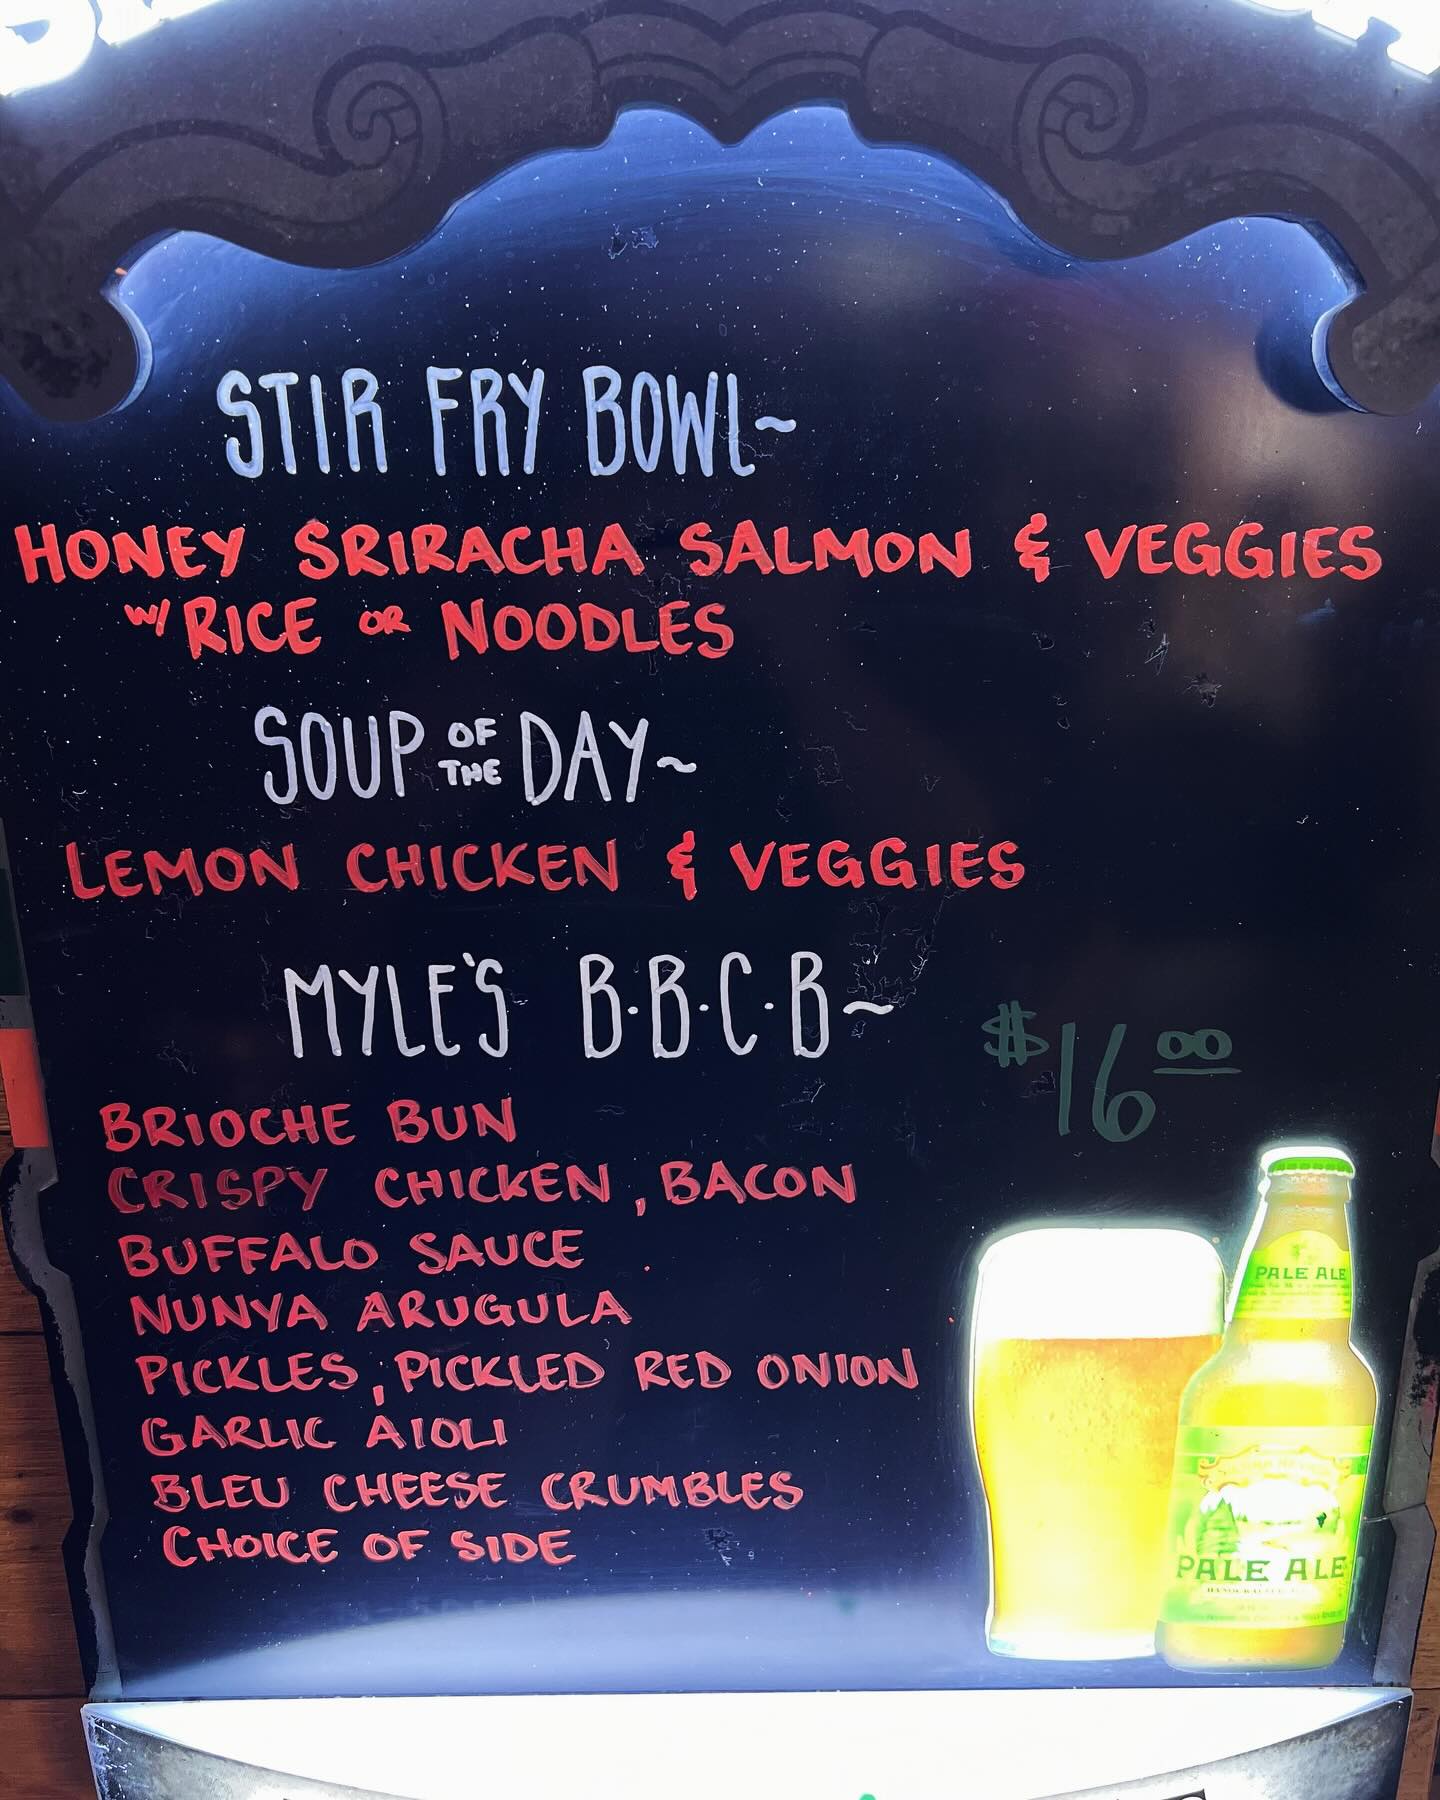 STIR FRY BOWL~
HONEY SRIRACHA SALMON & VEGGIES
W/ RICE OR NOODLES
SOUP OF THE DAY~
LEMON CHICKEN & VEGGIES
MYLE'S B·B·C·B~
$16.00
BRIOCHE BUN
CRISPY CHICKEN, BACON
BUFFALO SAUCE
NUNYA ARUGULA
PICKLES, PICKLED RED ONION
GARLIC AIOLI
BLEU CHEESE CRUMBLES
CHOICE OF SIDE
PALE ALE
PALE ALE